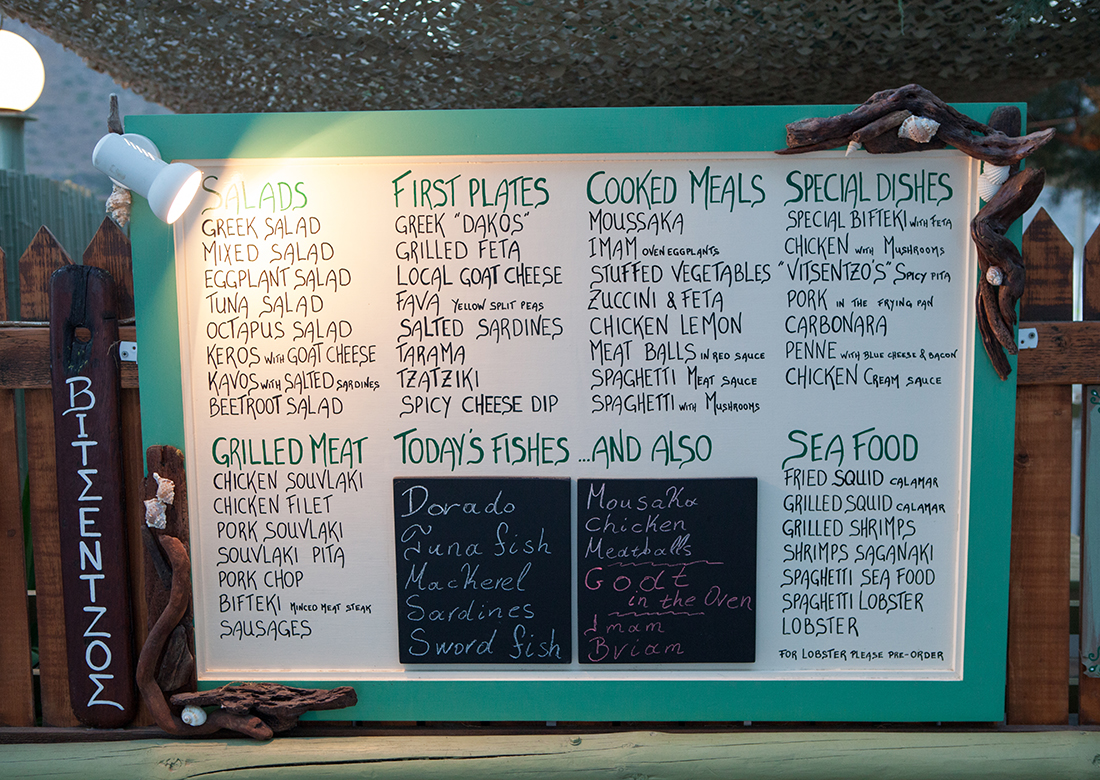 SALADS
GREEK SALAD
MIXED SALAD
EGGPLANT SALAD
TUNA SALAD
OCTAPUS SALAD
KEROS WITH GOAT CHEESE
KAVOS WITH SALTED SARDINES
BEETROOT SALAD
FIRST PLATES
GREEK "DAKOS"
GRILLED FETA
LOCAL GOAT CHEESE
FAVA YELLOW SPLIT PEAS
SALTED SARDINES
TARAMA
TZATZIKI
SPICY CHEESE DIP
COOKED MEALS
MOUSSAKA
IMAM OVEN EGGPLANTS
STUFFED VEGETABLES
ZUCCINI & FETA
CHICKEN LEMON
MEAT BALLS IN RED SAUCE
SPAGHETTI MEAT SAUCE
SPAGHETTI WITH MUSHROOMS
SPECIAL DISHES
SPECIAL BIFTEKI WITH FETA
CHICKEN WITH MUSHROOMS
"VITSENTZO'S" SPICY PITA
PORK IN THE FRYING PAN
CARBONARA
PENNE WITH BLUE CHEESE & BACON
CHICKEN CREAM SAUCE
GRILLED MEAT
CHICKEN SOUVLAKI
CHICKEN FILET
PORK SOUVLAKI
SOUVLAKI PITA
PORK CHOP
BIFTEKI MINCED MEAT STEAK
SAUSAGES
TODAY'S FISHES ...AND ALSO
Dorado
Tuna fish
Mackerel
Sardines
Sword fish
Mousaka
Chicken
Meatballs
Godt
in the Oven
Imam
Briam
SEA FOOD
FRIED SQUID CALAMAR
GRILLED SQUID CALAMAR
GRILLED SHRIMPS
SHRIMPS SAGANAKI
SPAGHETTI SEA FOOD
SPAGHETTI LOBSTER
LOBSTER
FOR LOBSTER PLEASE PRE-ORDER
ΒΙΤΣΕΝΤΖΟΣ